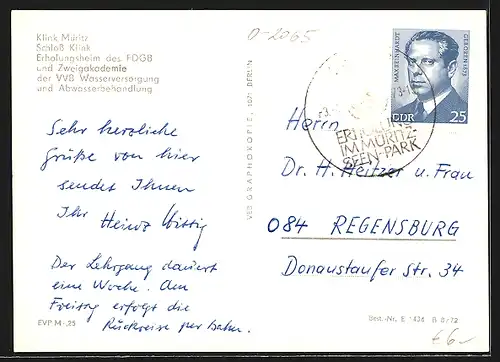 Klink Müritz
Schloß Klink
Erholungsheim des FDGB
und Zweigakademie
der VVB Wasserversorgung
und Abwasserbehandlung
0-2065
Sehr herzliche
Grüße von hier
sendet Ihnen
Ihr Heinz Wittig
Der Lehrgang dauert
eine Woche. Am
Freitag erfolgt die
Rückreise per Bahn.
EVP M -,25
VEB GRAPHOKOPIE, 1071 BERLIN
MAX REINHARDT
GEBOREN 1873
DDR 25
ERHOLUNG
IM MÜRITZ
SEEN-PARK
Herrn
Dr. H. Heitzer u. Frau
084 REGENSBURG
Donaustaufer Str. 34
Best.-Nr. E 1438 B 8/72
€6-